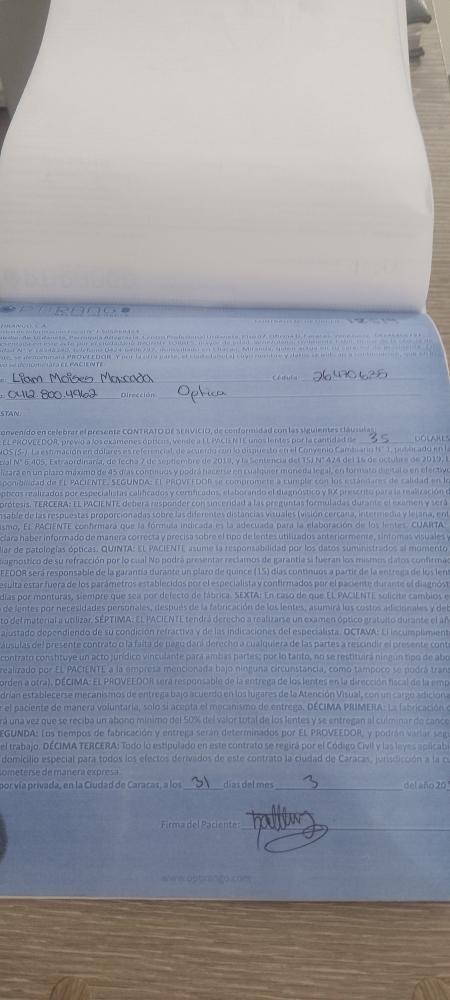 OPTIRANGO
TIRANGO, C.A
se denominará EL PACIENTE:
Liam Moises Cédula: 26470635
0412.800.4962 Dirección: Optica
STAN:
convenido en celebrar el presente CONTRATO DE SERVICIO, de conformidad con las siguientes cláusulas:
EL PROVEEDOR, previo a los exámenes ópticos, vende a EL PACIENTE unos lentes por la cantidad de 35 DÓLARES
NOS ($-). La estimación en dólares es referencial, de acuerdo con lo dispuesto en el Convenio Cambiario N° 1, publicado en la
cial N° 6.405, Extraordinaria, de fecha 7 de septiembre de 2018, y la Sentencia del TSJ N° 424 del 16 de octubre de 2019,
lizará en un plazo máximo de 45 días continuos y podrá hacerse en cualquier moneda legal, en formato digital o en efectivo
sponibilidad de EL PACIENTE. SEGUNDA: EL PROVEEDOR se compromete a cumplir con los estándares de calidad en lo
ópticos realizados por especialistas calificados y certificados, elaborando el diagnóstico y RX prescrito para la realización d
prótesis. TERCERA: EL PACIENTE deberá responder con sinceridad a las preguntas formuladas durante el examen y será
nsable de las respuestas proporcionadas sobre las diferentes distancias visuales (visión cercana, intermedia y lejana, ent
ismo, EL PACIENTE confirmará que la fórmula indicada es la adecuada para la elaboración de los lentes. CUARTA:
clara haber informado de manera correcta y precisa sobre el tipo de lentes utilizados anteriormente, síntomas visuales
liar de patologías ópticas. QUINTA: EL PACIENTE asume la responsabilidad por los datos suministrados al momento
diagnostico de su refracción por lo cual No podrá presentar reclamos de garantía si fueran los mismos datos confirmad
EEDOR será responsable de la garantía durante un plazo de quince (15) días continuos a partir de la entrega de los lent
esulta estar fuera de los parámetros establecidos por el especialista y confirmados por el paciente durante el diagnóst
días por monturas, siempre que sea por defecto de fábrica. SEXTA: En caso de que EL PACIENTE solicite cambios e
de lentes por necesidades personales, después de la fabricación de los lentes, asumirá los costos adicionales y deb
to del material a utilizar. SÉPTIMA: EL PACIENTE tendrá derecho a realizarse un examen óptico gratuito durante el añ
ajustado dependiendo de su condición refractiva y de las indicaciones del especialista. OCTAVA: El incumplimient
áusulas del presente contrato o la falta de pago dará derecho a cualquiera de las partes a rescindir el presente cont
contrato constituye un acto jurídico vinculante para ambas partes; por lo tanto, no se restituirá ningún tipo de abo
realizado por EL PACIENTE a la empresa mencionada bajo ninguna circunstancia, como tampoco se podrá tran
orden a otra). DÉCIMA: EL PROVEEDOR será responsable de la entrega de los lentes en la dirección fiscal de la emp
drían establecerse mecanismos de entrega bajo acuerdo en los lugares de la Atención Visual, con un cargo adicion
r el paciente de manera voluntaria, solo si acepta el mecanismo de entrega. DÉCIMA PRIMERA: La fabricación
rá una vez que se reciba un abono mínimo del 50% del valor total de los lentes y se entregan al culminar de cance
EGUNDA: Los tiempos de fabricación y entrega serán determinados por EL PROVEEDOR, y podrán variar seg
el trabajo. DÉCIMA TERCERA: Todo lo estipulado en este contrato se regirá por el Código Civil y las leyes aplicab
domicilio especial para todos los efectos derivados de este contrato la ciudad de Caracas, jurisdicción a la cu
someterse de manera expresa.
por vía privada, en la Ciudad de Caracas, a los 31 días del mes 3 del año 20
Firma del Paciente:
www.optirango.com